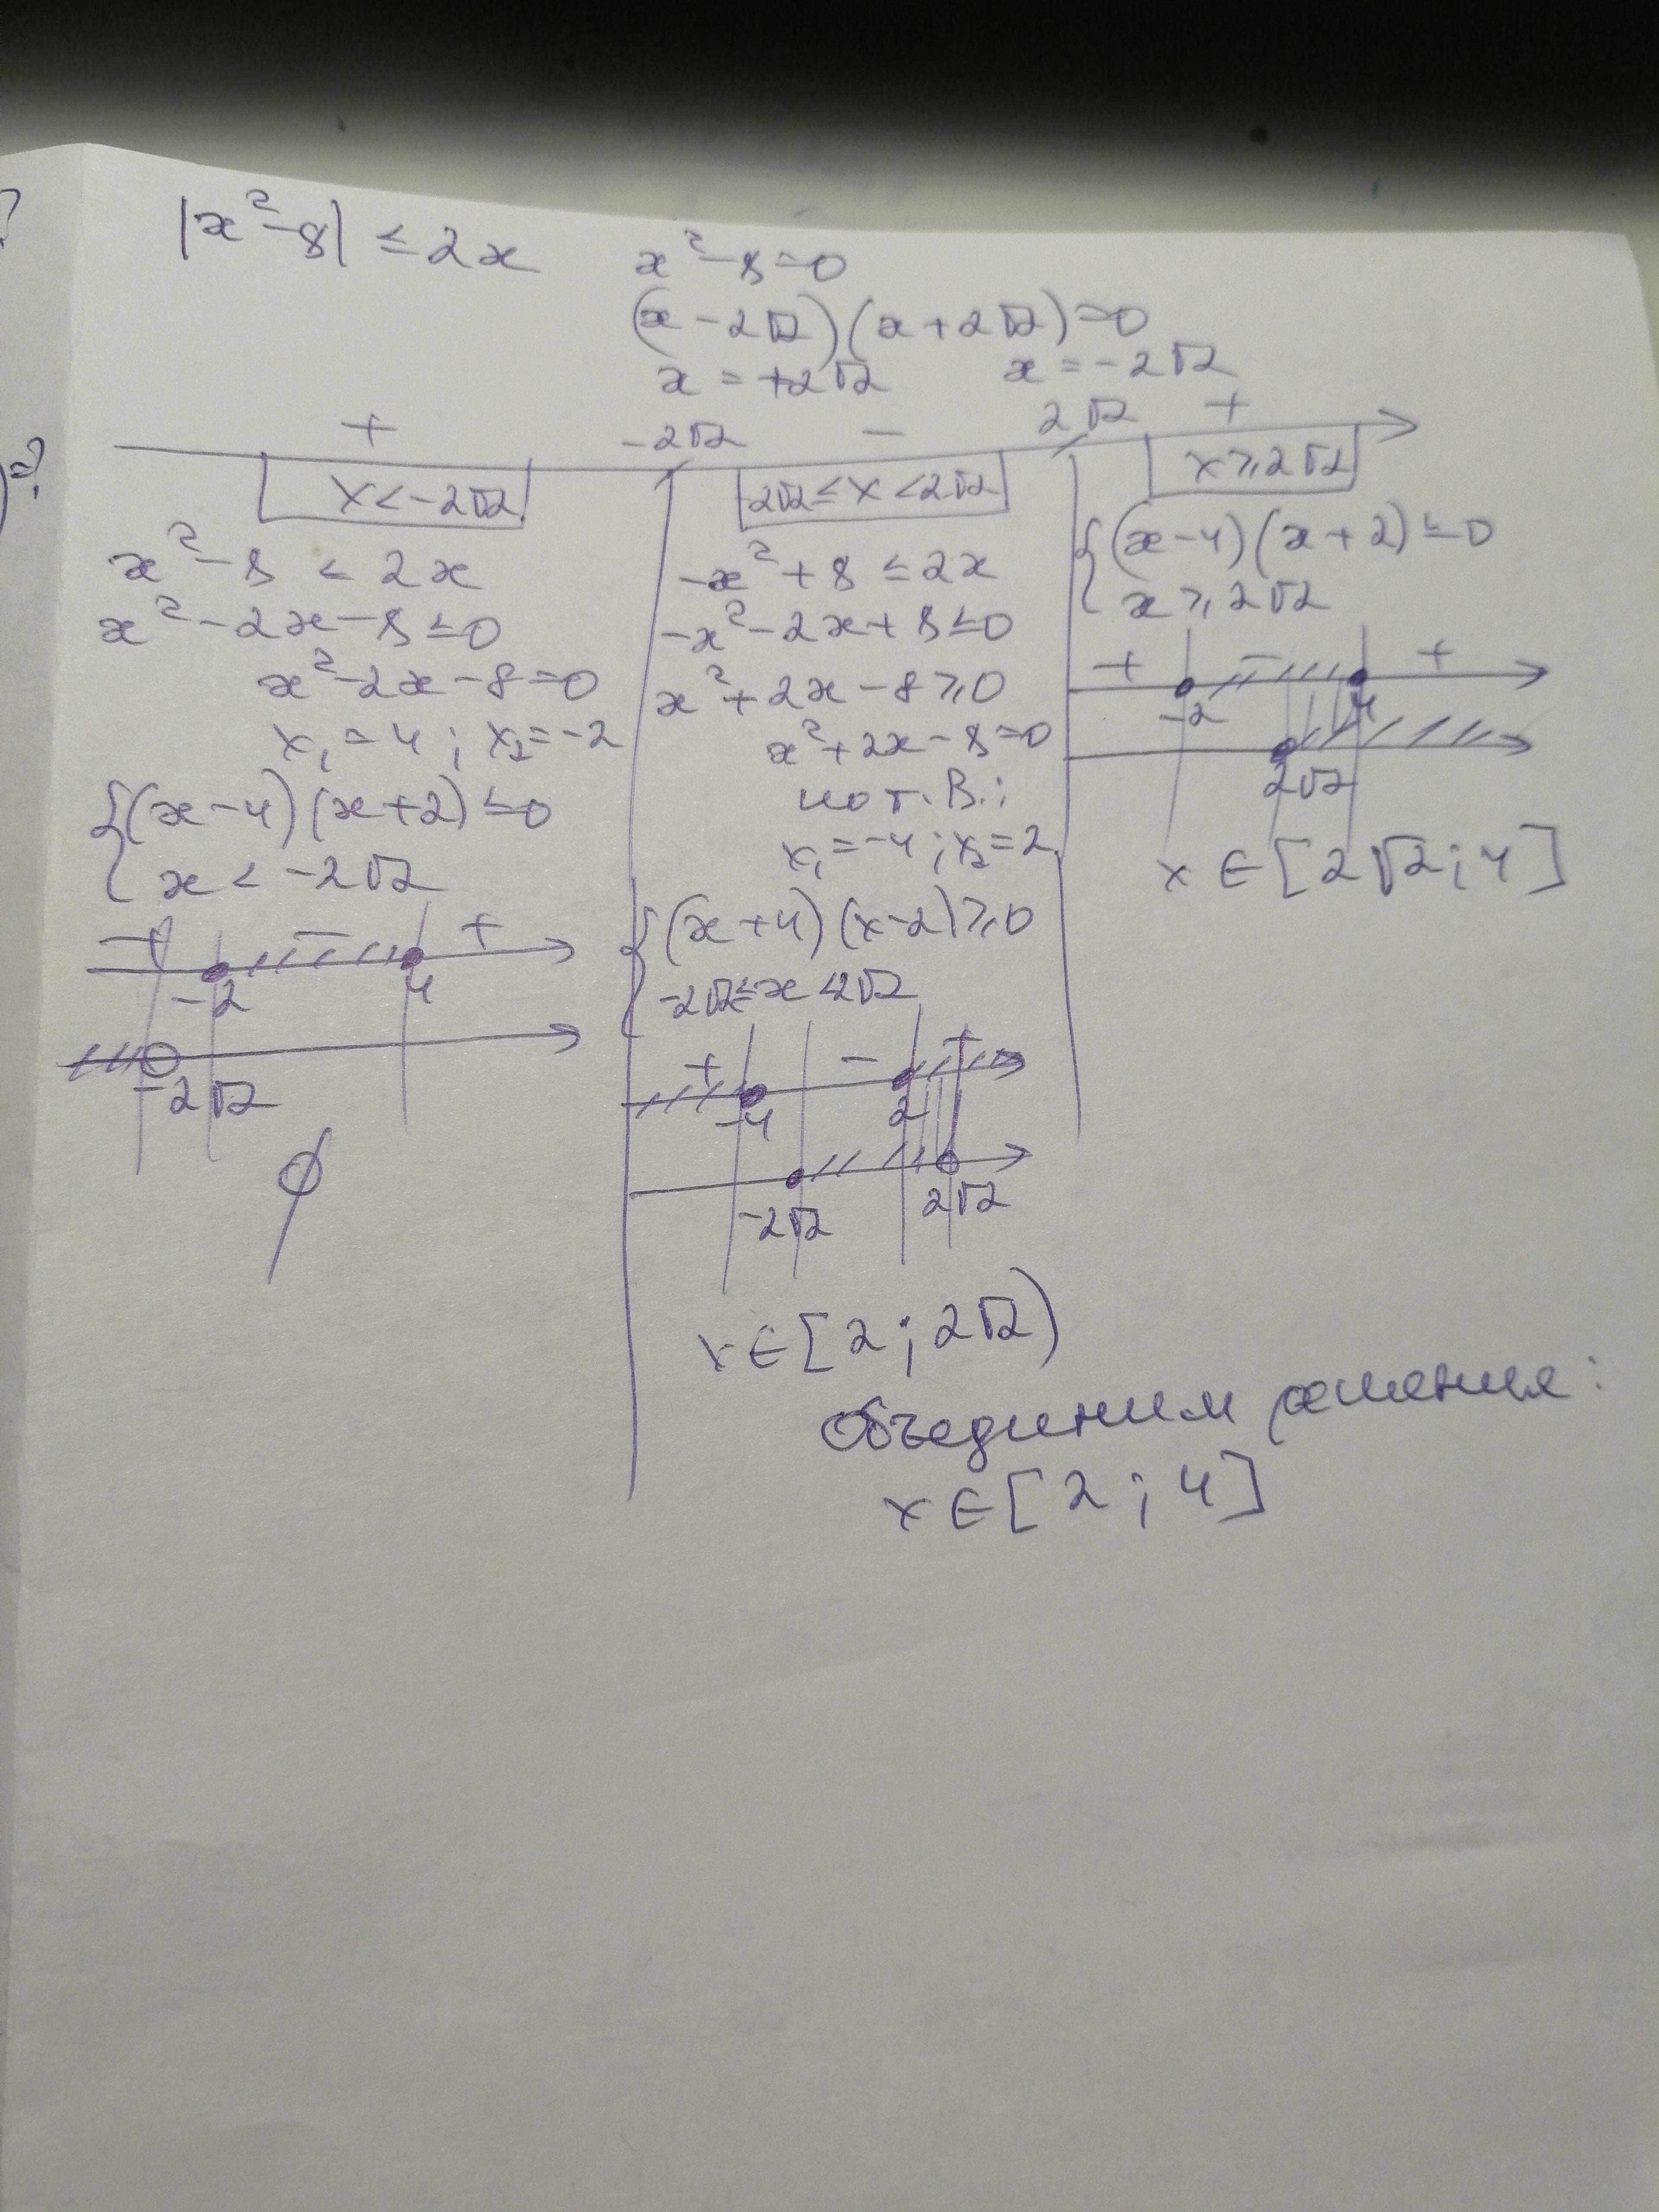 ?
|x²-8| ≤ 2x
x²-8=0
(x-2√2)(x+2√2)=0
x=+2√2 x=-2√2
+ -2√2 - 2√2 +
)=?
x<-2√2
x²-8 ≤ 2x
x²-2x-8≤0
x²-2x-8=0
x₁=4; x₂=-2
{(x-4)(x+2)≤0
x<-2√2
+ - +
-2 4
-2√2
∅
2√2≤x<2√2
-x²+8≤2x
-x²-2x+8≤0
x²+2x-8≥0
x²+2x-8=0
по т. В.:
x₁=-4; x₂=2
{(x+4)(x-2)≥0
-2√2≤x<2√2
+ - +
-4 2
-2√2 2√2
x∈[2;2√2)
x≥2√2
{(x-4)(x+2)≤0
x≥2√2
+ - +
-2 4
2√2
x∈[2√2;4]
Объединим решения:
x∈[2;4]